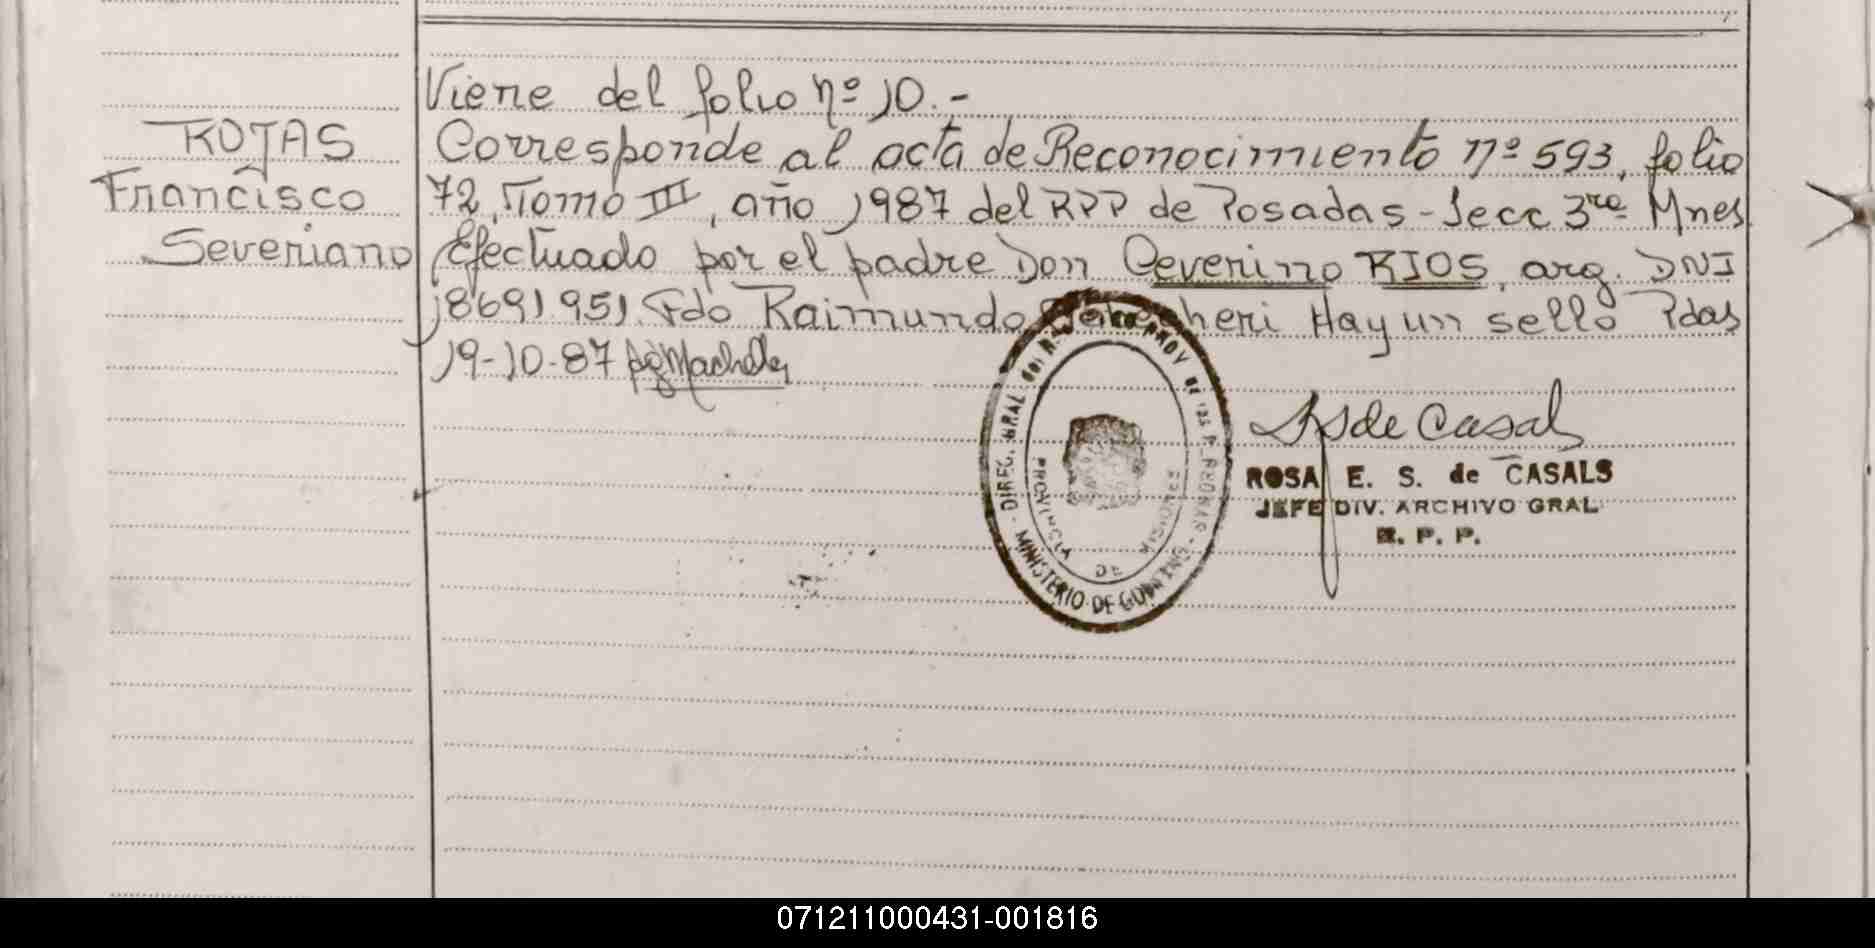 Viene del folio nº 10.-
ROJAS
Francisco
Severiano
Corresponde al acta de Reconocimiento nº 593, folio
72, Tomo III, año 1987 del RPP de Posadas - Secc 3ra Mnes
Efectuado por el padre Don Ceverino RIOS, arg. DNI
18691951. Fdo Raimundo Hay un sello Pdas
19-10-87
DIREC. GRAL del PROV DE LAS
MINISTERIO DE
PROVINCIA DE MISIONES
de Casal
ROSA E. S. de CASALS
JEFE DIV. ARCHIVO GRAL
R. P. P.
071211000431-001816